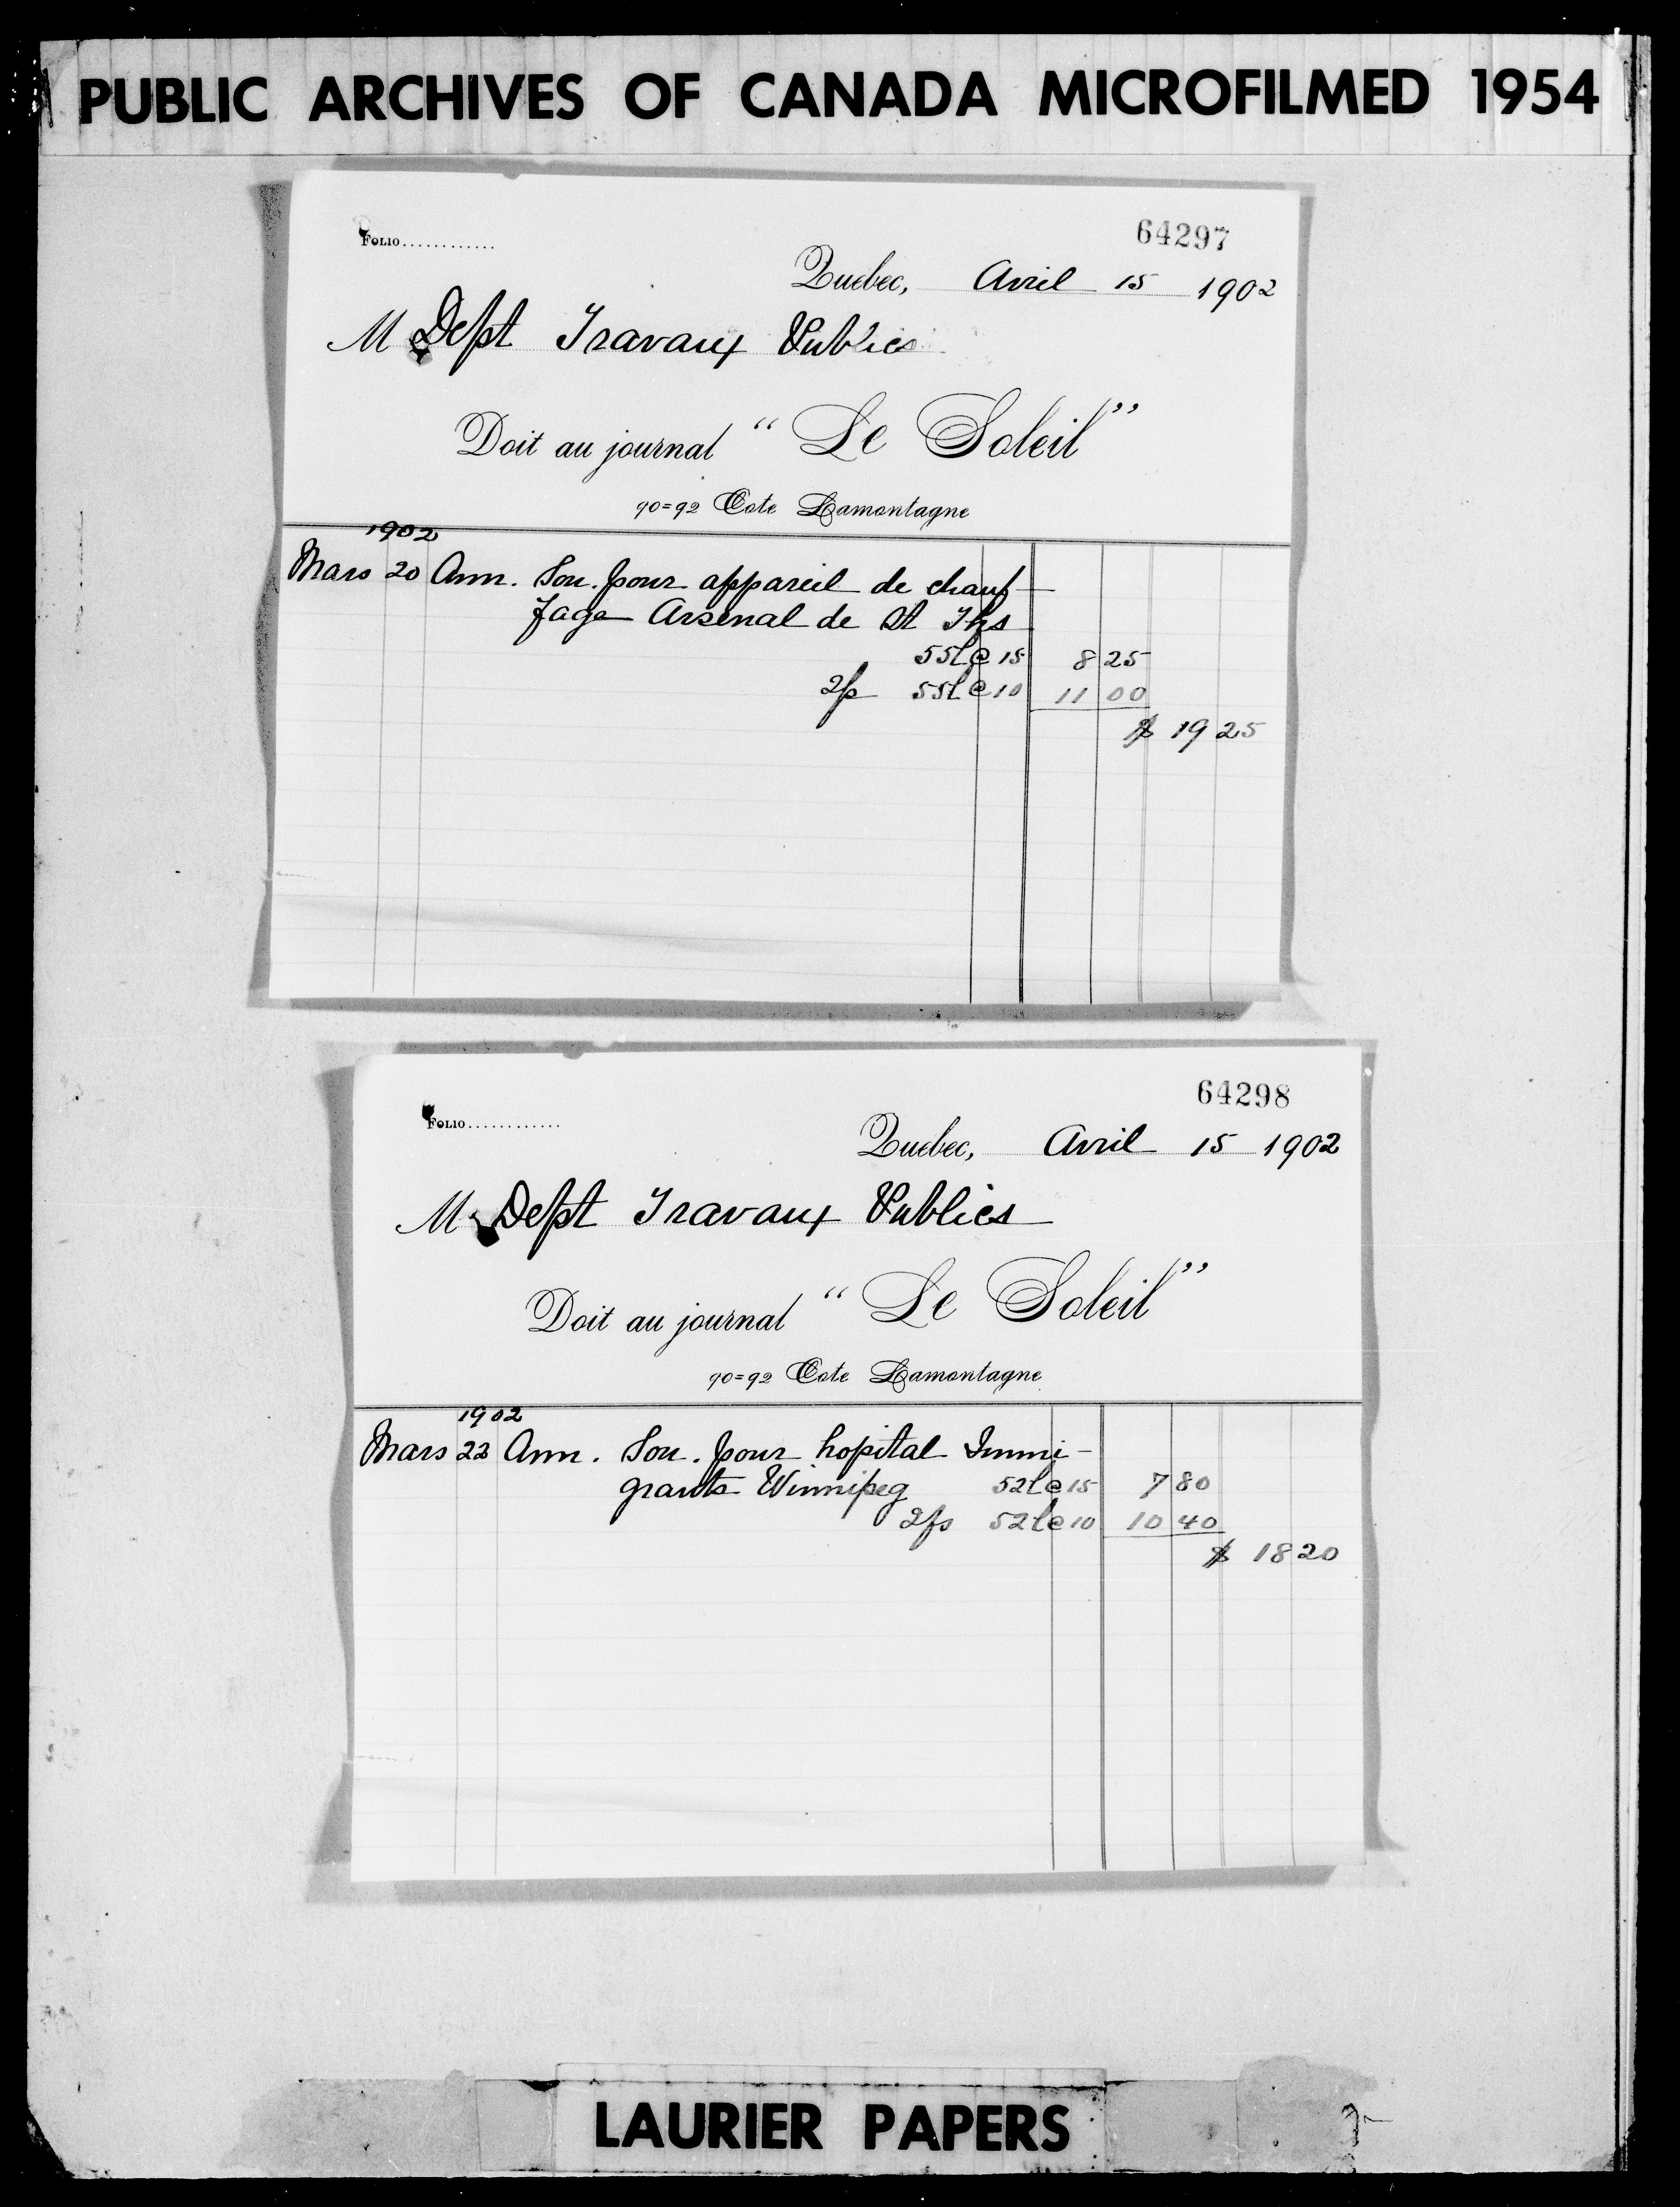 PUBLIC ARCHIVES OF CANADA MICROFILMED 1954
64297
FOLIO............
Quebec, Avril 15 1902
M Dept Travaux Publics
Doit au journal “Le Soleil”
90=92 Cote Lamontagne
1902
Mars 20 Ann. Sou. pour appareil de chauf-
fage Arsenal de St Ths
55l @ 15 8 25
2fs 55l @ 10 11 00
$ 19 25
64298
FOLIO............
Quebec, Avril 15 1902
M Dept Travaux Publics
Doit au journal “Le Soleil”
90=92 Cote Lamontagne
1902
Mars 22 Ann. Sou. pour hopital Immi-
grants Winnipeg 52l @ 15 7 80
2fs 52l @ 10 10 40
$ 18 20
LAURIER PAPERS